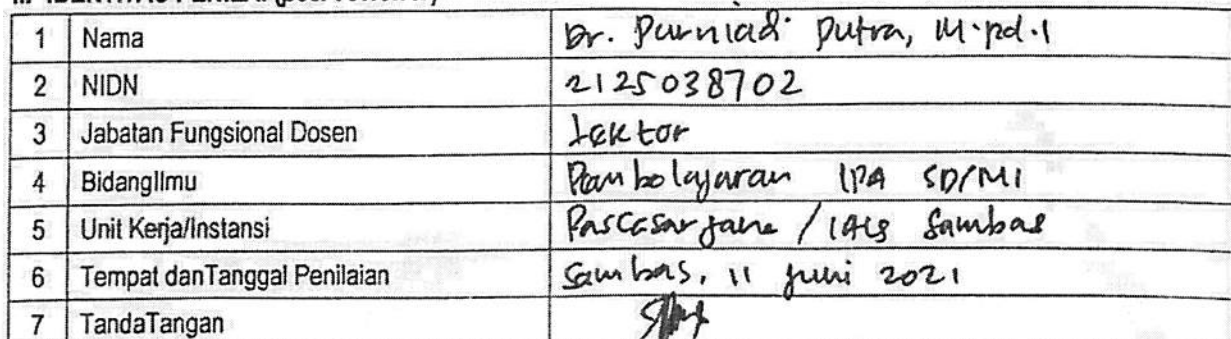 1 Nama Dr. Purniadi Putra, M.pd.I
2 NIDN 2125038702
3 Jabatan Fungsional Dosen Lektor
4 BidangIlmu Pembelajaran IPA SD/MI
5 Unit Kerja/Instansi Pascasarjana / IAIS Sambas
6 Tempat danTanggal Penilaian Sambas, 11 juni 2021
7 TandaTangan